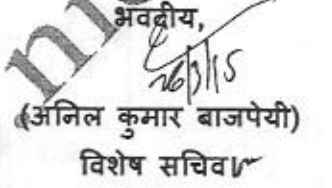 भवदीय,
26/3/15
(अनिल कुमार बाजपेयी)
विशेष सचिव।